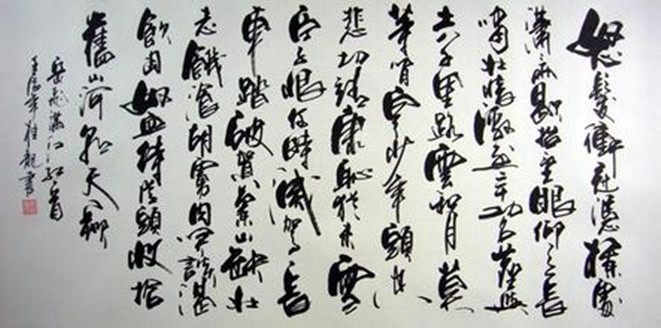 怒髮衝冠憑欄處
瀟瀟雨歇抬望眼仰天長
嘯壯懷激烈三十功名塵與
土八千里路雲和月莫
等閒白了少年頭空
悲切靖康恥猶未雪
臣子恨何時滅駕長
車踏破賀蘭山缺壯
志饑餐胡虜肉笑談渴
飲匈奴血待從頭收拾
舊山河朝天闕
岳飛滿江紅一首
年 龍書